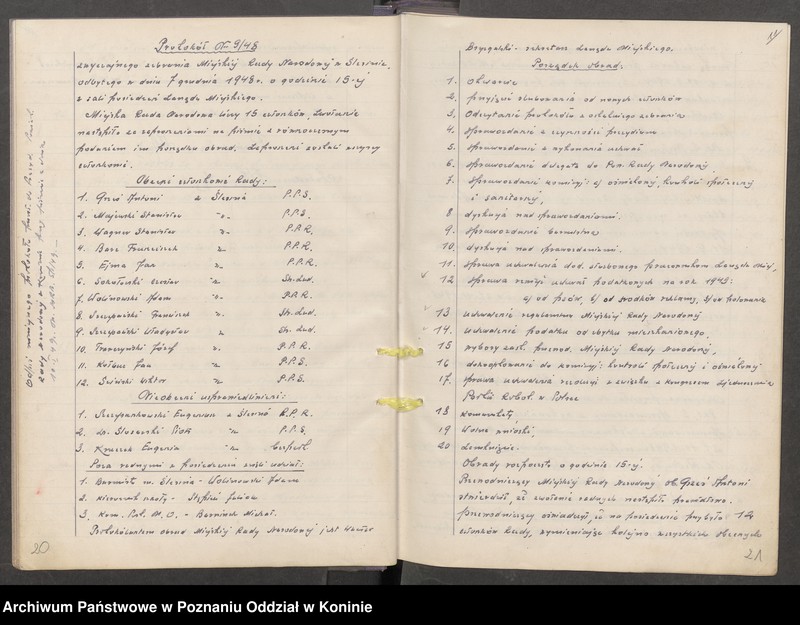 Protokół Nr 9/48
zwyczajnego zebrania Miejskiej Rady Narodowej w Ślesinie,
odbytego w dniu 7 grudnia 1948 r. o godzinie 15-ej
w sali posiedzeń Zarządu Miejskiego.
Miejska Rada Narodowa liczy 15 członków. Zwołanie
nastąpiło za zaproszeniami na piśmie z równoczesnym
podaniem im porządku obrad. Zaproszeni zostali wszyscy
członkowie.
Obecni członkowie Rady:
1. Grześ Antoni z Ślesina P.P.S.
2. Majewski Stanisław " P.P.S.
3. Wagner Stanisław " P.P.R.
4. Franciszek " P.P.R.
5. Ejma Jan " P.P.R.
6. Sokołowski Czesław " Str. Lud.
7. Wolinowski Adam " P.P.R.
8. Szczepański Franciszek " Str. Lud.
9. Szczepański Władysław " Str. Lud.
10. Józef " P.P.R.
11. Jan " P.P.S.
12. Wiktor " P.P.S.
Nieobecni usprawiedliwieni:
1. Eugeniusz z Ślesina P.P.R.
2. Piotr " P.P.S.
3. Eugenia " Bezpart.
Poza radnymi w posiedzeniu wzięli udział:
1. Burmistrz m. Ślesina - Wolinowski Adam
2. Kierownik szkoły -
3. Kom. Pol. M. O. - Michał.
Protokólantem obrad Miejskiej Rady Narodowej jest Walter
20
19
sekretarz Zarządu Miejskiego.
Porządek obrad.
1. Otwarcie
2. Przyjęcie ślubowania od nowych członków
3. Odczytanie protokołu z ostatniego zebrania
4. Sprawozdanie z czynności prezydium
5. Sprawozdanie z wykonania uchwał
6. Sprawozdanie delegata do Pow. Rady Narodowej
7. Sprawozdanie komisji: a) oświatowej, kontroli społecznej
i sanitarnej,
8 dyskusja nad sprawozdaniami.
9. Sprawozdanie burmistrza
10. dyskusja nad sprawozdaniem.
11. Sprawa uchwalenia dod. służbowego pracownikom Zarządu Miej,
12 Sprawa rewizji uchwał podatkowych na rok 1949:
a) od psów, b) od środków reklamy, c) od polowania
13 uchwalenie regulaminu Miejskiej Rady Narodowej
14. uchwalenie podatku od zbytku mieszkaniowego,
15 wybory zast. przewod. Miejskiej Rady Narodowej,
16 dokooptowanie do komisji: kontroli społecznej i oświatowej
17. Sprawa uchwalenia rezolucji w związku z kongresem Zjednoczenia
Partii Robot. w Polsce
18 Komunikaty
19 Wolne wnioski,
20 Zamknięcie.
Obrady rozpoczęto o godzinie 15-ej.
Przewodniczący Miejskiej Rady Narodowej ob. Grześ Antoni
stwierdził, że zwołanie radnych nastąpiło prawidłowo.
Przewodniczący oświadczył, że na posiedzenie przybyło 12
członków Rady, wymieniając kolejno wszystkich obecnych
21
Archiwum Państwowe w Poznaniu Oddział w Koninie